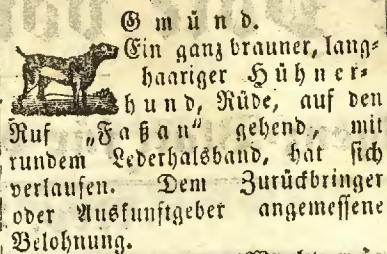 Gmünd.
Ein ganz brauner, lang-
haariger Hühner-
hund, Rüde, auf den
Ruf „Faßan“ gehend, mit
rundem Lederhalsband, hat sich
verlaufen. Dem Zurückbringer
oder Auskunftgeber angemessene
Belohnung.